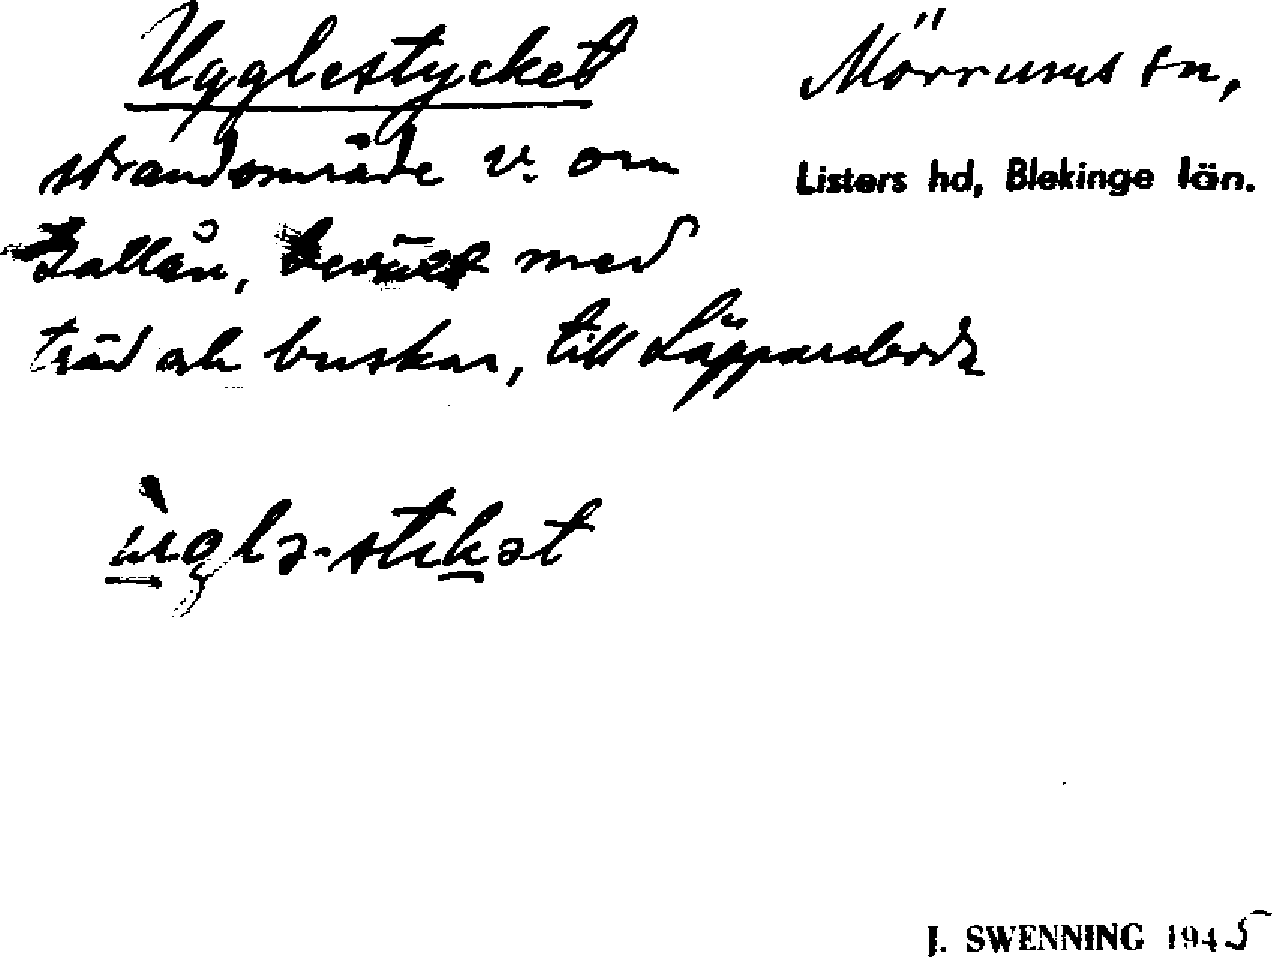 Ugglestycket
Mörrums sn,
Listers hd, Blekinge län.
strandområde v. om
beväxt med
träd och buskar, till
ùglə-stykət
J. SWENNING 1945